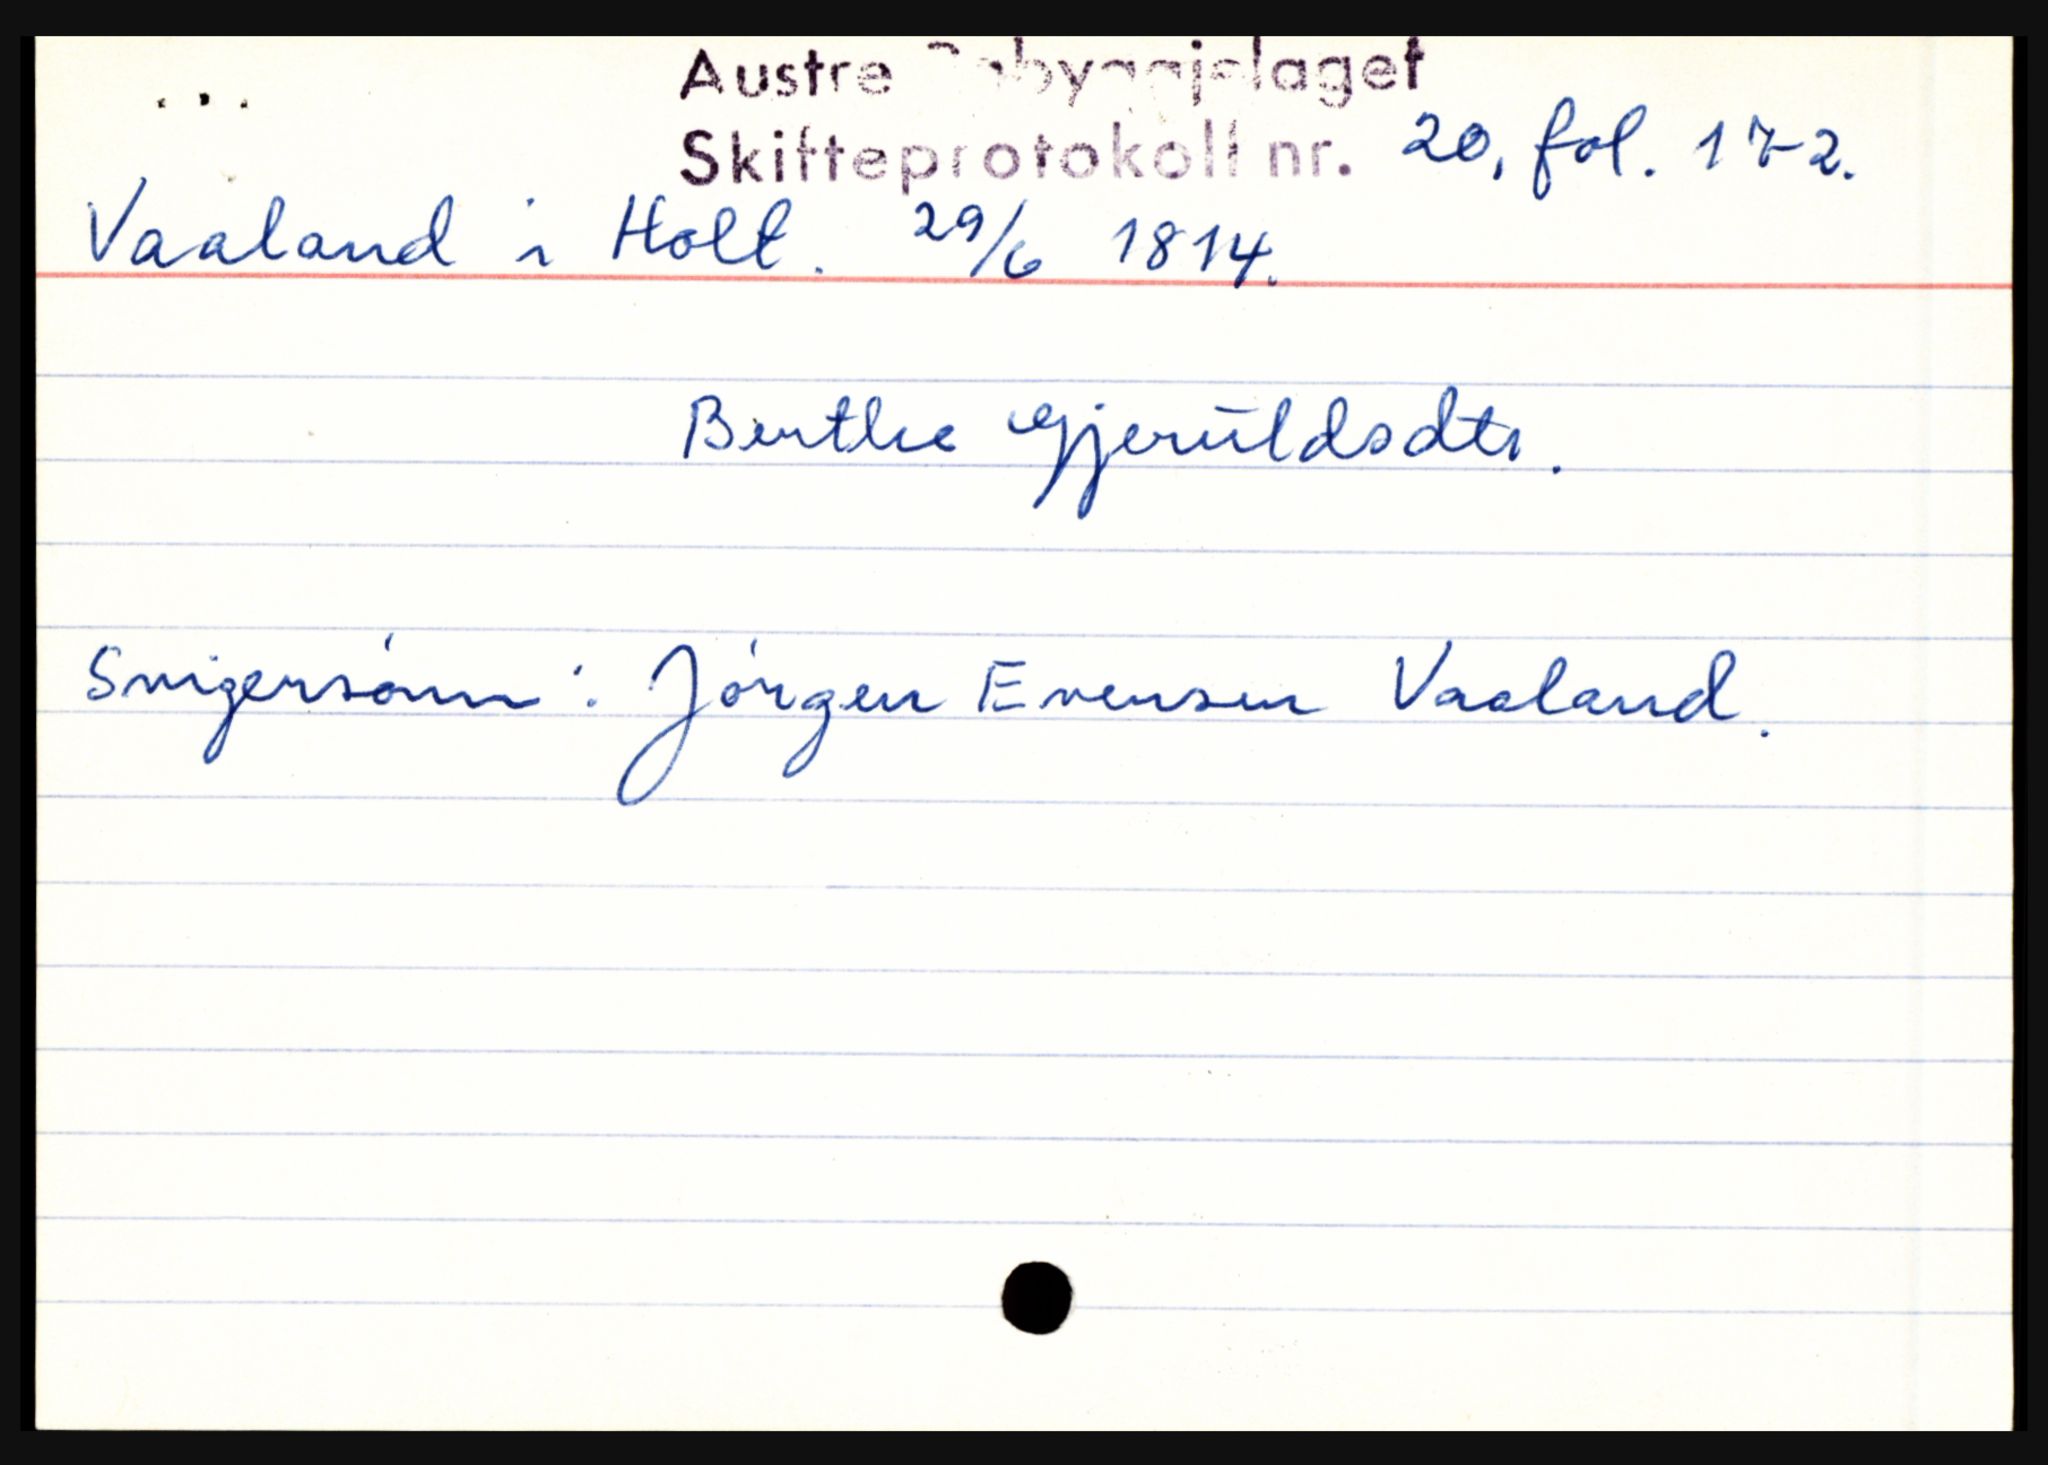 Austre Råbyggjelaget
Skifteprotokoll nr. 20, fol. 172.
Vaaland i Holt. 29/6 1814.
Berthe Gjerŭldsdtr.
Svigersónn: Jórgen Evensen Vaaland.